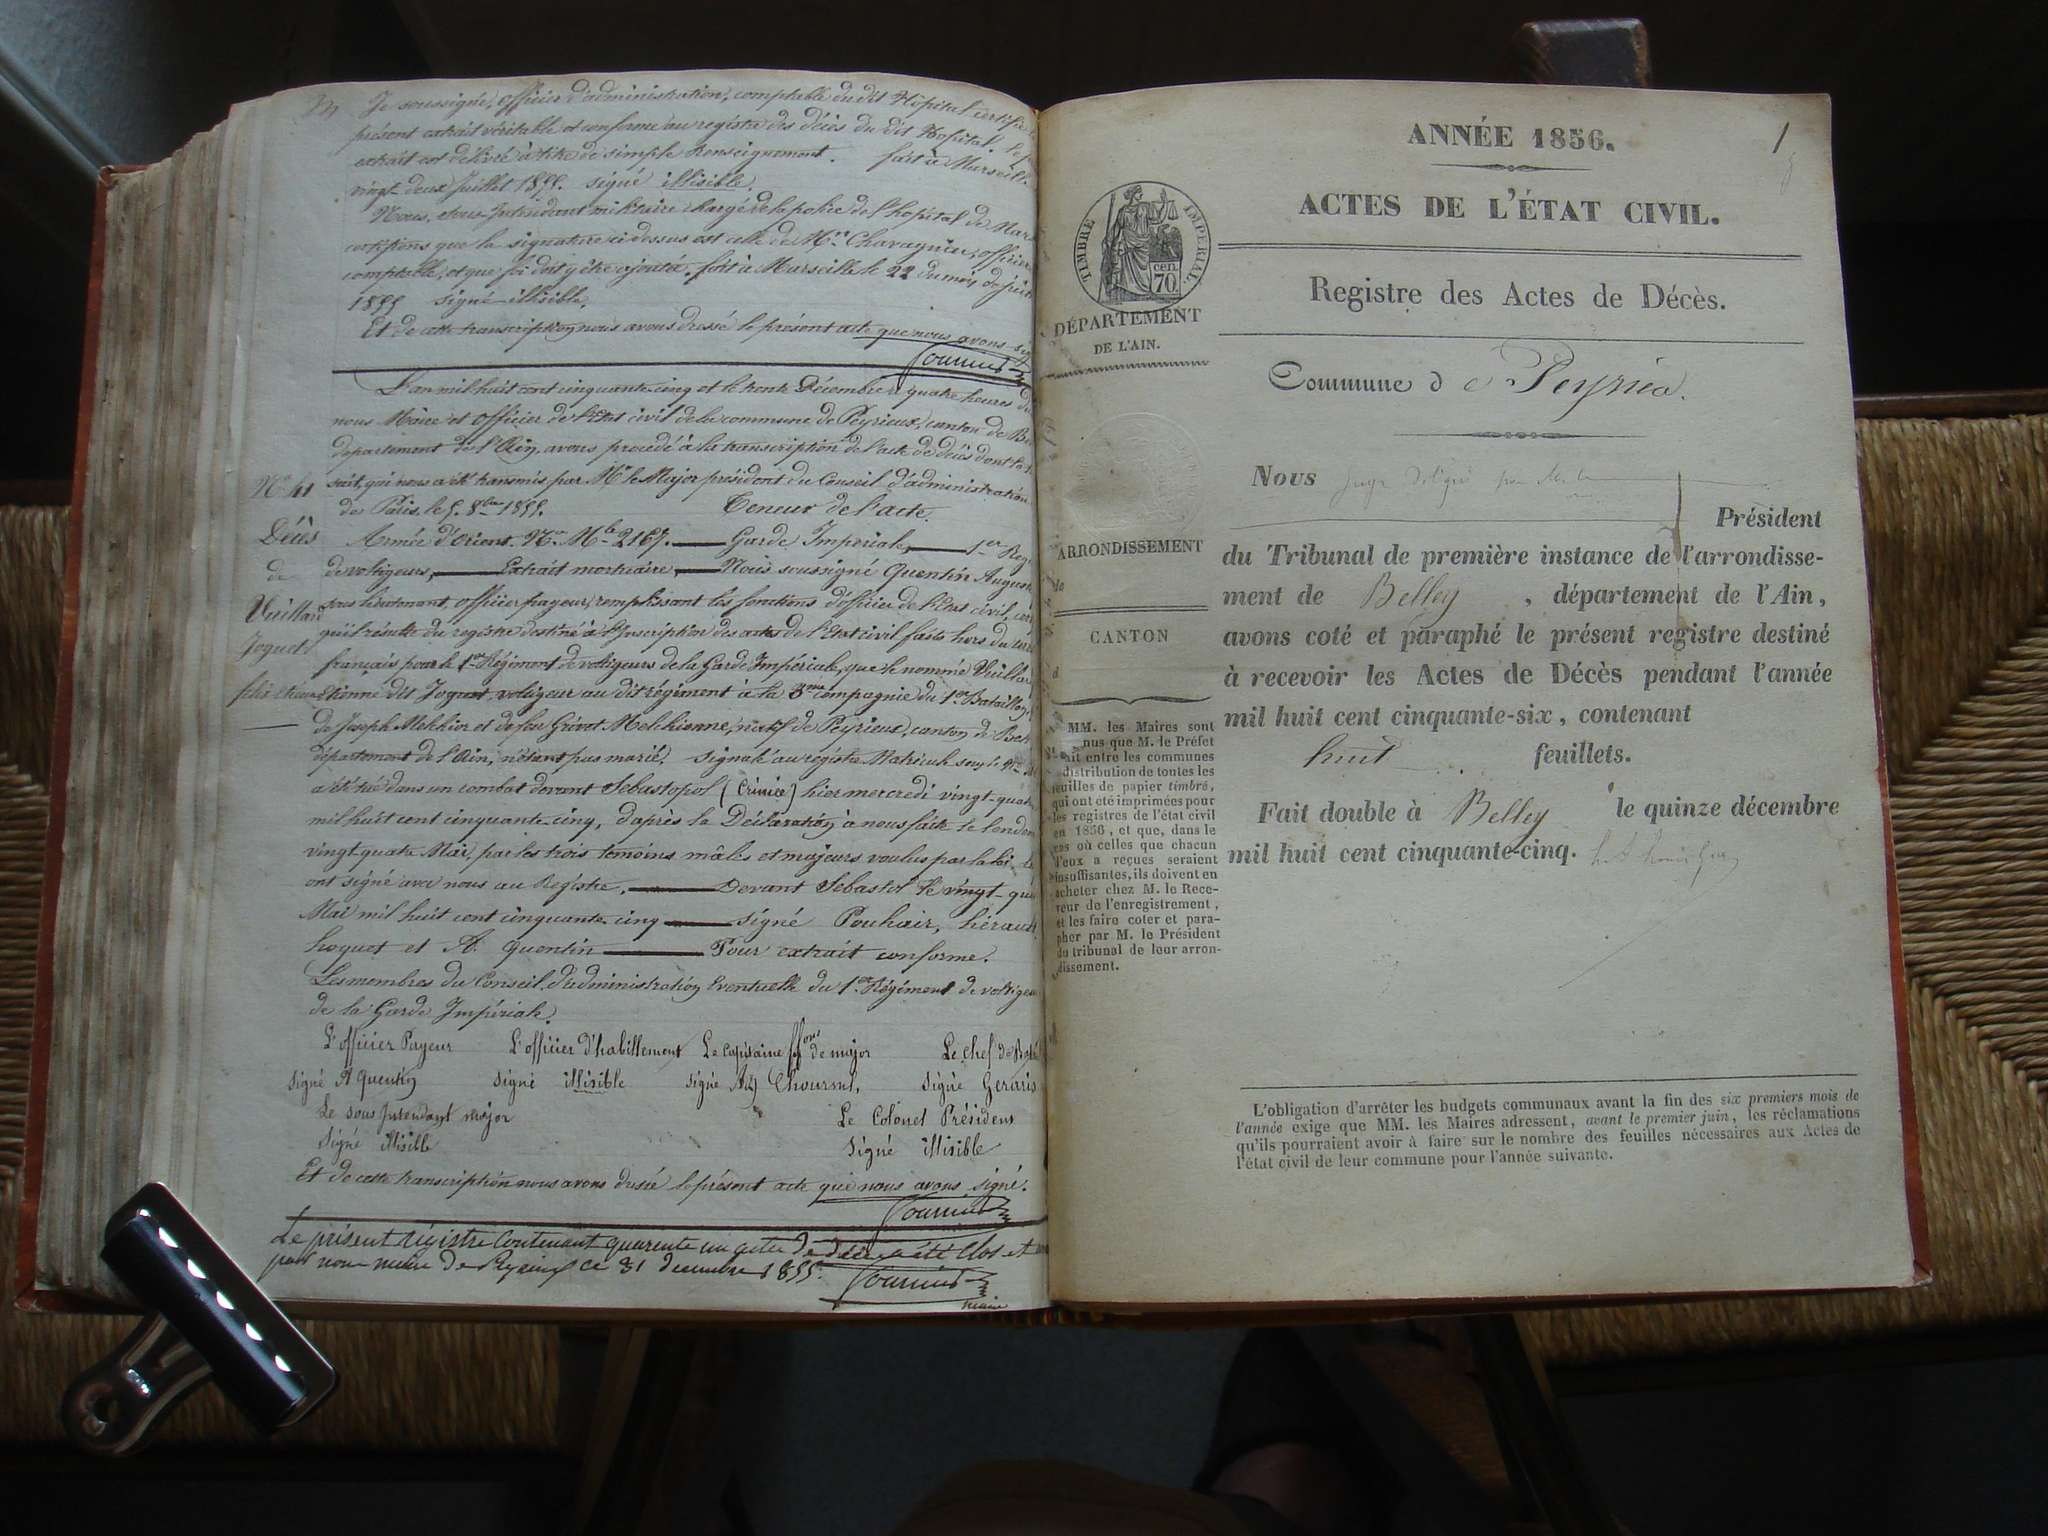 Je soussigné, officier d'administration, comptable du dit Hôpital certifie
présent extrait véritable et conforme au registre des décès du dit Hopital. le p
extrait est délivré à titre de simple Renseignement. fait à Marseill
vingt deux Juillet 1855. signé illisible.
Nous, sous-Intendant militaire chargé de la police de l'hopital de Mar
certifions que la signature ci dessus est celle de Mr. Chavagnieu, officier
comptable, et que foi doit y être ajoutée. fait à Marseille le 22 du mois de
1855 signé illisible.
Et de cette transcription nous avons dressé le présent acte que nous avons
L'an mil huit cent cinquante cinq et le trente Décembre à quatre heures du
nous Maire et officier de l'Etat civil de la commune de Peyrieux, canton de
département de l'Ain, avons procédé à la transcription de l'acte de décès dont la
N° 41
suit, qui nous a été transmis par Mr le Major président du Conseil d'administration
de Paris, le 5. 8bre 1855. Teneur de l'acte.
Décès
Armée d'Orient. N° Mle 2167. — Garde Impériale, — 1er Reg
de
de voltigeurs, — Extrait mortuaire, — Nous soussigné Quentin Augus
Vuillard
sous lieutenant, officier payeur, remplissant les fonctions d'officier de l'Etat civil, cer
Joguet
qu'il résulte du registre destiné à l'Inscription des actes de l'Etat civil faits hors du terr
français pour le 1er Régiment de voltigeurs de la Garde Impériale, que le nommé Vuillar
Etienne dit Joguet, voltigeur au dit régiment à la 3me compagnie du 1er Bataillon
de Joseph Melchior et de feu Melchionne, natif de Peyrieux, canton de
département de l'Ain, n'étant pas marié. signalé au régistre Matricule sous le N°
a été tué dans un combat devant Sebastopol (Crimée) hier mercredi vingt-
mil huit cent cinquante cinq, d'après la Déclaration à nous faite le lendem
vingt quatre Mai, par les trois temoins mâles et majeurs voulus par la loi
ont signé avec nous au Registre. — Devant Sebastol le vingt-qu
Mai mil huit cent cinquante-cinq — signé Pouhair, hérau
hoguet et A. Quentin — Pour extrait conforme.
Les membres du Conseil d'administration Eventuelle du 1er Régiment de voltigeu
de la Garde Impériale.
L'officier Payeur L'officier d'habillement Le capitaine ffons de major Le chef de
Signé A Quentin Signé illisible signé Signé
Le sous Intendant major Le Colonel Président
Signé illisible Signé illisible
Et de cette transcription nous avons dressé le présent acte que nous avons signé.
Le présent régistre Contenant quarente un actes de décès a été Clos et
par nous maire de Peyrieux ce 31 decembre 1855.
maire
1
8
ANNÉE 1856.
ACTES DE L'ÉTAT CIVIL.
TIMBRE IMPERIAL.
cen.
70.
Registre des Actes de Décès.
DÉPARTEMENT
DE L'AIN.
Commune de Peyrieu.
Nous Juge Délégué par
Président
ARRONDISSEMENT
du Tribunal de première instance de l'arrondisse-
ment de Belley, département de l'Ain,
CANTON
avons coté et paraphé le présent registre destiné
à recevoir les Actes de Décès pendant l'année
mil huit cent cinquante-six, contenant
huit feuillets.
Fait double à Belley le quinze décembre
mil huit cent cinquante-cinq.
MM. les Maires sont
nus que M. le Préfet
ait entre les communes
distribution de toutes les
feuilles de papier timbré,
qui ont été imprimées pour
les registres de l'état civil
en 1856, et que, dans le
cas où celles que chacun
d'eux a reçues seraient
insuffisantes, ils doivent en
acheter chez M. le Rece-
veur de l'enregistrement,
et les faire coter et para-
pher par M. le Président
du tribunal de leur arron-
dissement.
L'obligation d'arrêter les budgets communaux avant la fin des six premiers mois de
l'année exige que MM. les Maires adressent, avant le premier juin, les réclamations
qu'ils pourraient avoir à faire sur le nombre des feuilles nécessaires aux Actes de
l'état civil de leur commune pour l'année suivante.